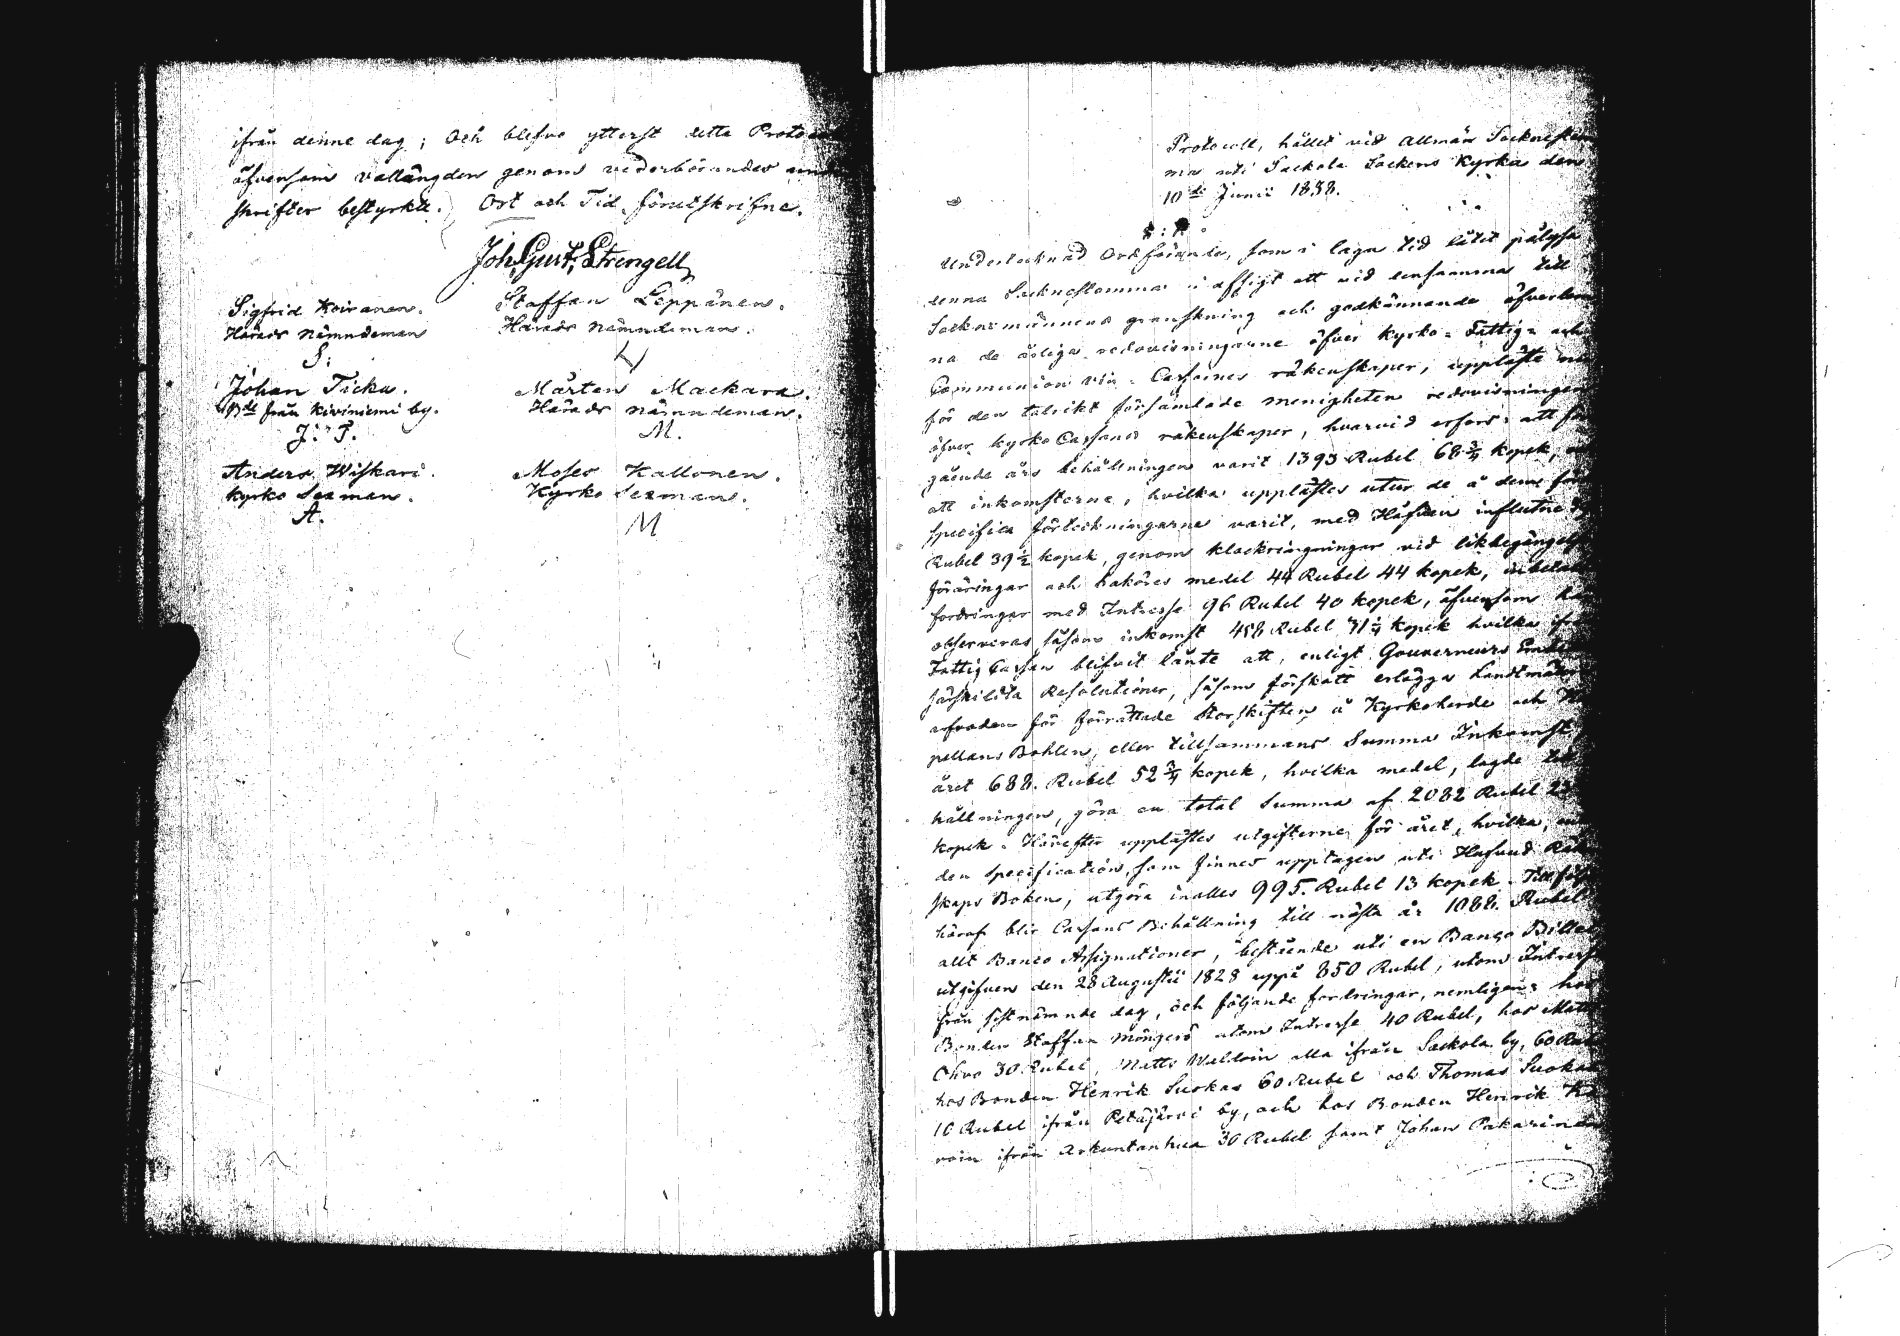 ifrån denne dag; Och blefvo ytterst detta Proto
äfvensom vallängden genom vederbörandes und
skrifter bestyrkte. Ort och Tid förutskrifne.
Joh. Gust. Strengell
Sigfrid Koiranen. Staffan Leppänen.
Härads Nämndeman Härads Nämndeman.
S.
Johan Ticka. Mårten Mackara.
Bde från Kiviniemi by. Härads nämndeman.
J. T. M.
Anders Wiskari. Moses Kallonen.
Kyrko Sexman. Kyrko Sexman.
A. M
Protocoll, hållet vid Allmän Socknestäm
ma uti Sackola Sockens Kyrka den
10de Junii 1838.
Undertecknad Ordförande, som i laga tid låtit pålysa
denna Socknestämma i afsigt att vid densamma till
Socknemännens granskning och godkännande öfverlem
na de årliga redovisningarne öfver Kyrko- Fattig- och
Communion vin- Cassornes räkenskaper, uppläste nu
för den talrikt församlade menigheten redovisningen
öfver Kyrko Cassans räkenskaper, hvarvid erfors: att före
gående års behållningen varit 1393 Rubel 68 3/4 kopek,
att inkomsterne, hvilka upplästes utur de å dem förde
specifica förteckningarne varit, med Håfven influtne
Rubel 39 1/2 kopek, genom klockringningar vid likbegängelse
föräringar och baköres medel 44 Rubel 44 kopek, inbetalte
fordringar med Intresse 96 Rubel 40 kopek, äfvensom
observeras såsom inkomst 458 Rubel 71 1/4 kopek hvilka ifrån
Fattig Cassan blifvit lånte att, enligt Gouverneurs Embetets
särskildta Resolutioner, såsom förskott erlägga Landtmätare
arfvoden för förrättade Storskiften å Kyrkoherde och Ka
pellans Bohlen, eller tillsammans Summa Inkomst
året 688. Rubel 52 3/4 kopek, hvilka medel, lagde till
hållningen, göra en total Summa af 2082 Rubel
kopek. Härefter upplästes utgifterne för året, hvilka,
den specification, som finnes upptagen uti Hufvud Räken
skaps Boken, utgöra inalles 995. Rubel 13 kopek. Tillfölje
häraf blir Cassans Behållning till nästa år 1088. Rubel
allt Banco Assignationer, bestående uti en Banco Billet
utgifven den 28 Augustii 1828 uppå 850 Rubel, utom Intresse
från sistnämnde dag, och följande fordringar, nemligen: hos
Bonden Staffan Möngerö utom Intresse 40 Rubel, hos Matts
Ohvo 30 Rubel, Matts Waldoin alla ifrån Sackola by, 60 Rubel
hos Bonden Henrik Suokas 60 Rubel och Thomas Suokas
10 Rubel ifrån Petäjärvi by, och hos Bonden Henrik
voin ifrån Arkuntanhua 30 Rubel samt Johan Pakarinen